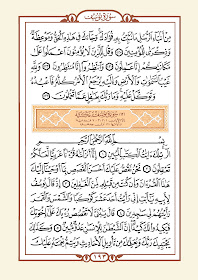 سورة يوسف
مِنْ أَنۢبَآءِ ٱلرُّسُلِ مَا نُثَبِّتُ بِهِۦ فُؤَادَكَ وَجَآءَكَ فِى هَـٰذِهِ ٱلْحَقُّ وَمَوْعِظَةٌ
وَذِكْرَىٰ لِلْمُؤْمِنِينَ وَقُل لِّلَّذِينَ لَا يُؤْمِنُونَ ٱعْمَلُوا۟ عَلَىٰ
مَكَانَتِكُمْ إِنَّا عَـٰمِلُونَ وَٱنتَظِرُوٓا۟ إِنَّا مُنتَظِرُونَ وَلِلَّهِ
غَيْبُ ٱلسَّمَـٰوَٰتِ وَٱلْأَرْضِ وَإِلَيْهِ يُرْجَعُ ٱلْأَمْرُ كُلُّهُۥ فَٱعْبُدْهُ
وَتَوَكَّلْ عَلَيْهِ وَمَا رَبُّكَ بِغَـٰفِلٍ عَمَّا تَعْمَلُونَ
سورة يوسف مكية
بِسْمِ ٱللَّهِ ٱلرَّحْمَـٰنِ ٱلرَّحِيمِ
الٓر تِلْكَ ءَايَـٰتُ ٱلْكِتَـٰبِ ٱلْمُبِينِ إِنَّآ أَنزَلْنَـٰهُ قُرْءَٰنًا عَرَبِيًّا لَّعَلَّكُمْ
تَعْقِلُونَ نَحْنُ نَقُصُّ عَلَيْكَ أَحْسَنَ ٱلْقَصَصِ بِمَآ أَوْحَيْنَآ إِلَيْكَ
هَـٰذَا ٱلْقُرْءَانَ وَإِن كُنتَ مِن قَبْلِهِۦ لَمِنَ ٱلْغَـٰفِلِينَ إِذْ قَالَ يُوسُفُ
لِأَبِيهِ يَـٰٓأَبَتِ إِنِّى رَأَيْتُ أَحَدَ عَشَرَ كَوْكَبًا وَٱلشَّمْسَ وَٱلْقَمَرَ
رَأَيْتُهُمْ لِى سَـٰجِدِينَ قَالَ يَـٰبُنَىَّ لَا تَقْصُصْ رُءْيَاكَ عَلَىٰٓ إِخْوَتِكَ
فَيَكِيدُوا۟ لَكَ كَيْدًا إِنَّ ٱلشَّيْطَـٰنَ لِلْإِنسَـٰنِ عَدُوٌّ مُّبِينٌ وَكَذَٰلِكَ
يَجْتَبِيكَ رَبُّكَ وَيُعَلِّمُكَ مِن تَأْوِيلِ ٱلْأَحَادِيثِ وَيُتِمُّ نِعْمَتَهُۥ عَلَيْكَ
١٩٣